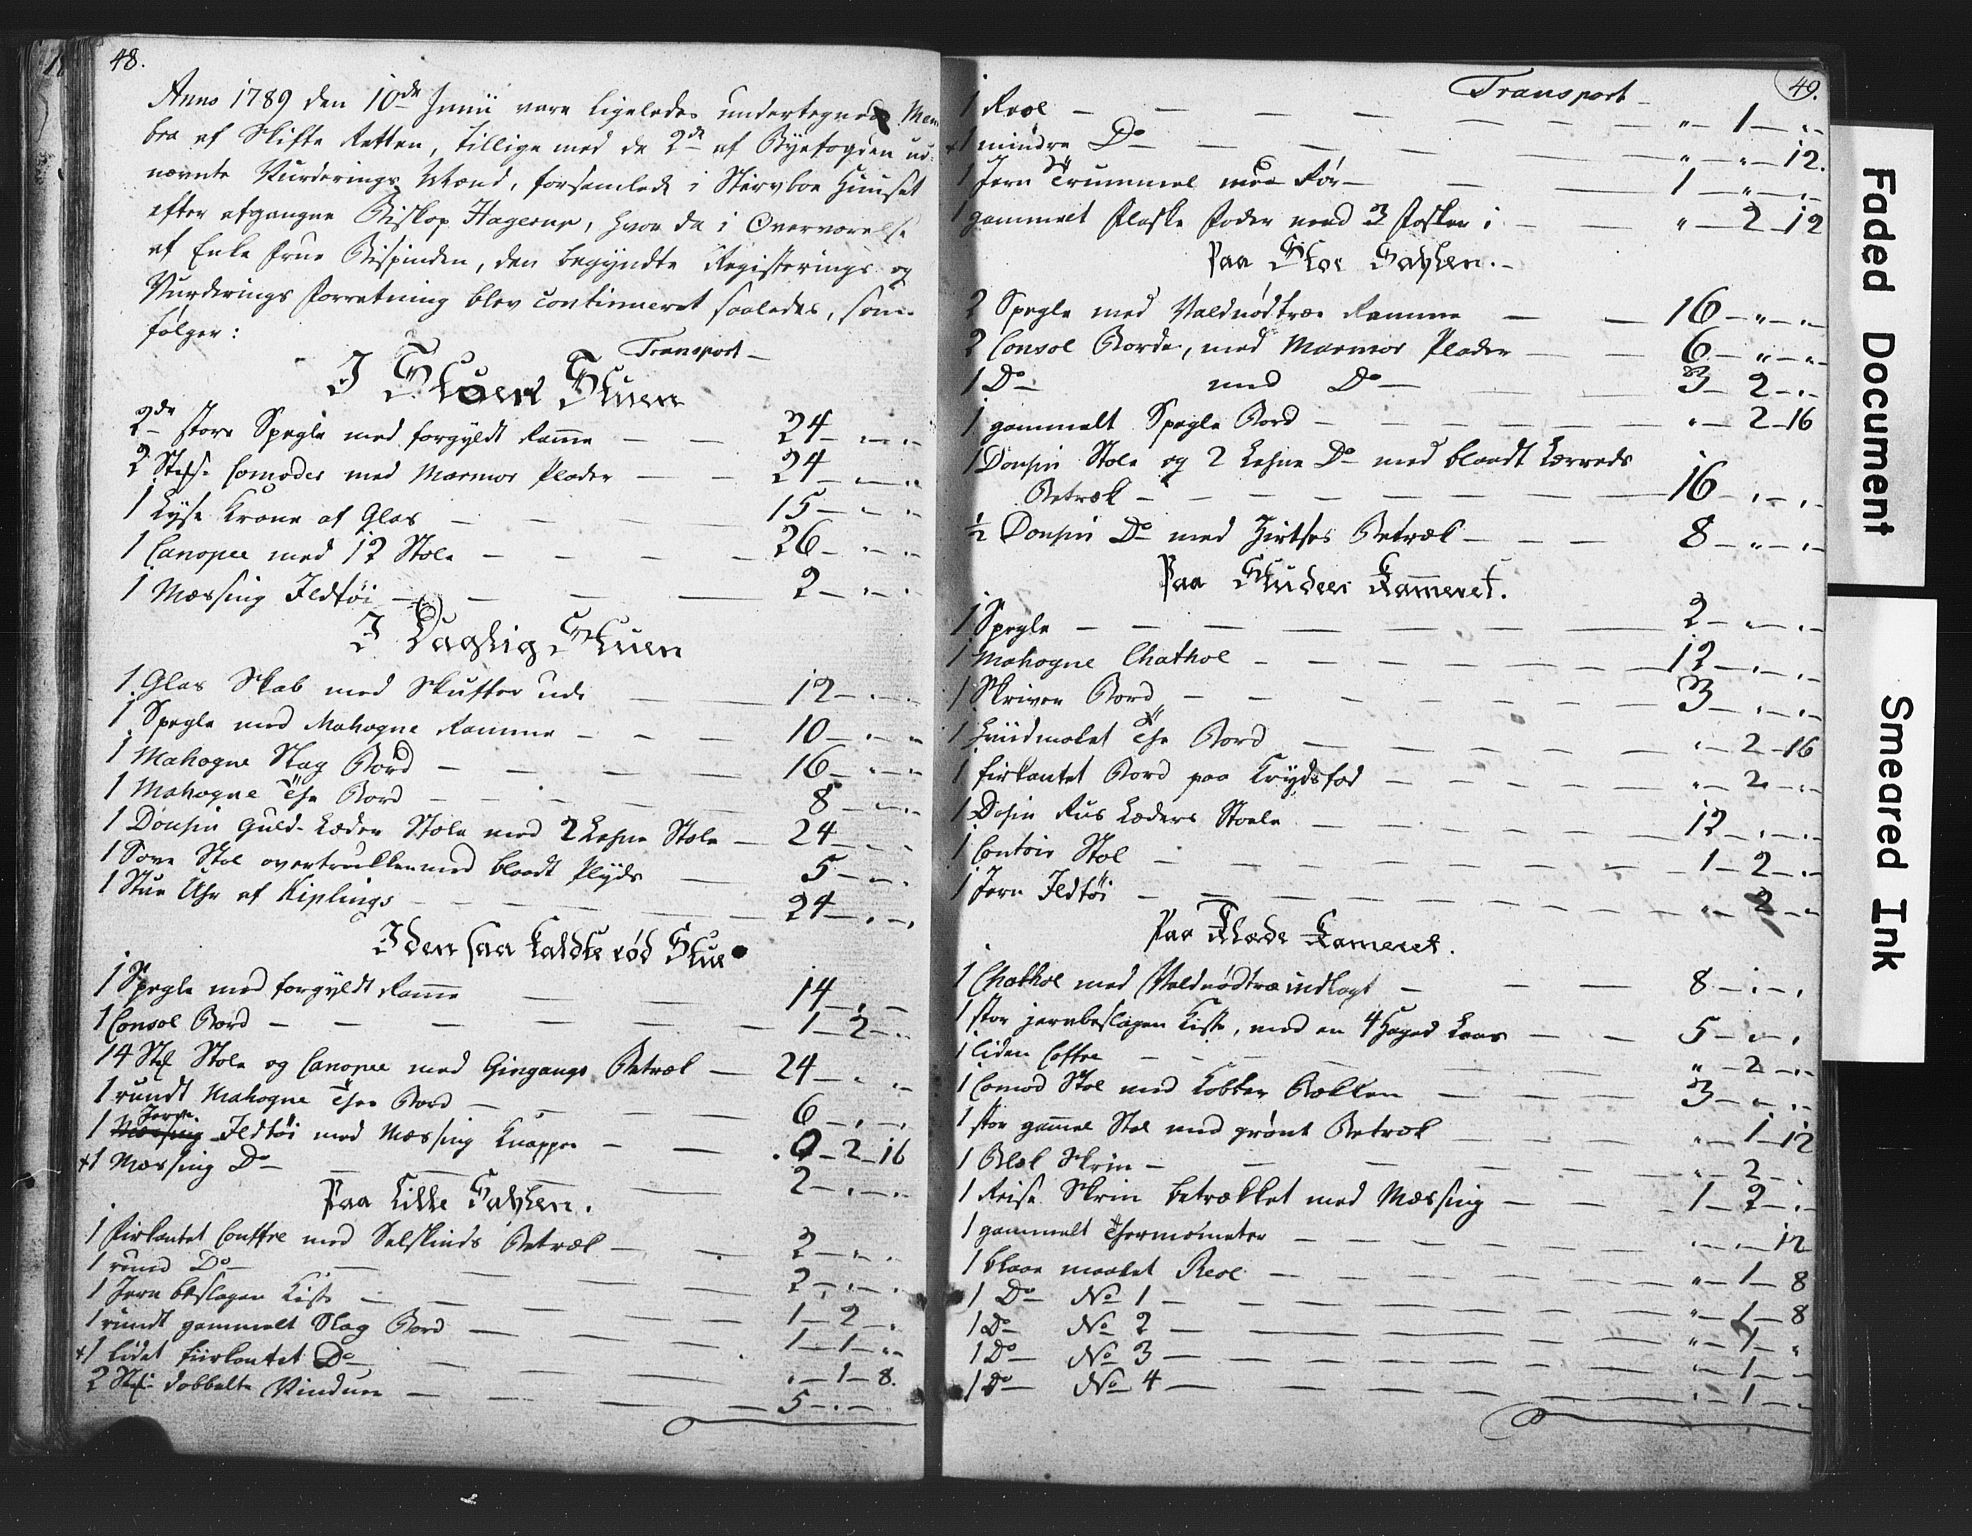 48.
Anno 1789 den 10de Junii vare ligeledes undertegnede Mem
bra af Skifte Retten, tillige med de 2de af Byefogden ud-
nævnte Vurderings Mænd, forsamlede i Stervboe Huuset
efter afgangne Biskop Hagerup, hvor da i Overværelse
af Enke Frue Bispinden, den begyndte Registerings og
Vurderings Forretning blev continueret saaledes, som
følger:
Transport
I Stoer Stuen
2de store Speyle med forgyldt Ramme 24 - " - "
2 Stk: Comoder med Marmor Plader 24 - " - "
1 Lyse Krone af Glas 15 - " - "
1 Canapee med 12 Stole 26 - " - "
1 Messing Ildtøi 2 - " - "
I Daglig Stuen
1 Glas Skab med Skuffer udi 12 - " - "
1 Speyle med Mahogne Ramme 10 - " - "
1 Mahogne Slag Bord 16 - " - "
1 Mahogne The Bord 8 - " - "
1 Dousin Guld-Læder Stole med 2 Lehne Stole 24 - " - "
1 Sove Stol overtrukken med blaadt Plyds 5 - " - "
1 Stue Uhr af Kiplings 24 - " - "
I den saa kaldte rød Stue
1 Speyle med forgyldt Ramme 14 - " - "
1 Consol Bord 1 - 2 - "
14 Stk Stole og Canapee med Gingangs Betræk 24 - " - "
1 rundt Mahogne Thee Bord 6 - " - "
Jern
1 Messing Ildtøi med Messing Knapper 0 - 2 - 16
+1 Messing Do 2 - " - "
Paa Lille Sahlen.
1 Firkantet Couffre med Selskinds Betræk 2 - " - "
1 rund Do 2 - " - "
1 Jern beslagen Kiste 1 - 2 - "
1 rundt gammelt Slag Bord 1 - 1 - "
+1 lidet fiirkantet Do " - 1 - 8.
2 Stk: dobbelte Vinduer 5 - " - "
49.
Transport
1 Reol " - 1 - "
+1 mindre Do " - " - 12.
1 Jern Trummel med Rør 1 - " - "
1 gammelt Flaske Foder med 3 Flasker i " - 2 - 12
Paa Stor Sahlen.
2 Speyle med Valdnødtræe Ramme 16 - " - "
2 Consol Borde, med Marmor Plader 6 - " - "
1 Do med Do 3 - 2 - "
1 gammelt Speyle Bord " - 2 - 16
1 Dousin Stole og 2 Lehne Do med blaadt Lærreds
Betræk 16 - " - "
1/2 Dousin Do med Zirtses Betræk 8 - " - "
Paa Studeer Kammeret.
1 Speyle 2 - " - "
1 Mahogne Chathol 12 - " - "
1 Skriver Bord 3 - " - "
1 hviidmalet The Bord " - 2 - 16
1 firkantet Bord paa Krydsfod " - 2 - "
1 Dosin Rus Læders Stoele 12 - " - "
1 Contoir Stol 1 - 2 - "
1 Jern Ildtøi " - 2 - "
Paa Klæde Kameret.
1 Chathol med Valdnødtræ indlagt 8 - " - "
1 stor jernbeslagen Kiste, med en 4 Haged Laas 5 - " - "
1 liden Coffre " - 2 - "
1 Comod Stol med Kobber Bækken 3 - " - "
1 stor gammel Stol med grønt Betræk " - 1 - 12
1 Blek Skrin " - 2 - "
1 Reise Skrin betrækket med Messing 1 - 2 - "
1 gammelt Thermometer " - " - 12
1 blaae maalet Reol " - 1 - 8
1 Do No 1 " - 1 - 8
1 Do No 2 " - 1 - "
1 Do No 3 " - 1 - "
1 Do No 4 " - 1 - "
Faded Document
Smeared Ink